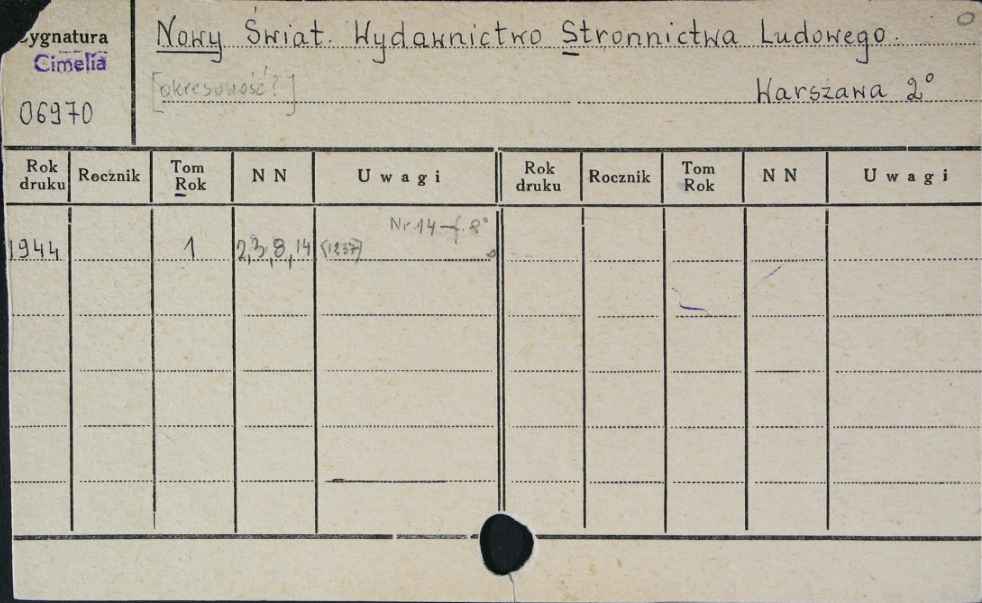 Sygnatura
Cimelia
06970
Nowy Świat. Wydawnictwo Stronnictwa Ludowego.
[okresowość?]
Warszawa 2°
Rok druku Rocznik Tom Rok NN Uwagi Rok druku Rocznik Tom Rok NN Uwagi
Nr 14 - f. 8°
1944 1 2,3,8,14 (1237)